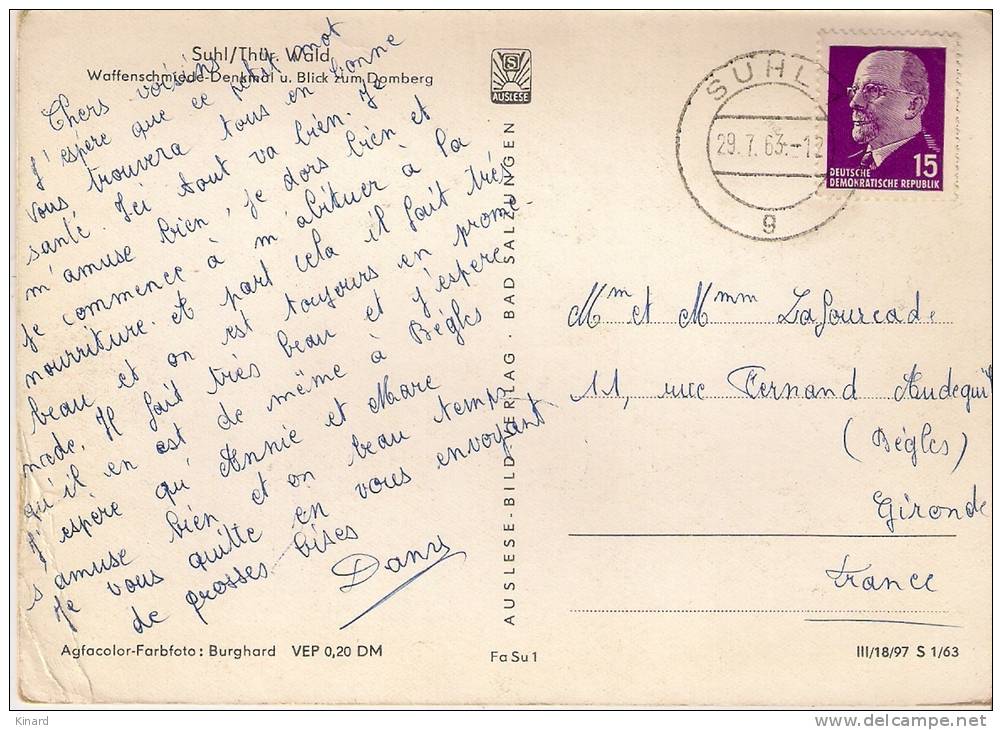 Suhl/Thür. Wald
Waffenschmiede-Denkmal u. Blick zum Domberg
Chers voisins
J'espère que ce petit mot
vous trouvera tous en bonne
santé. Ici tout va bien. Je
m'amuse bien, je dors bien et
je commence à m'abituer à la
nourriture. A part cela il fait très
beau et on est toujours en prome-
nade. Il fait très beau et j'espère
qu'il en est de même à Bègles
J'espère qu'Annie et Marc
s'amuse bien et on beau temps
Je vous quitte en vous envoyant
de grosses bises
Dany
S
AUSLESE
AUSLESE-BILD-VERLAG · BAD SALZUNGEN
SUHL
29.7.63.-12
g
15
DEUTSCHE
DEMOKRATISCHE REPUBLIK
Mm et Mmm Lafourcade
11, rue Fernand Audeguil
(Bègles)
Gironde
France
Agfacolor-Farbfoto: Burghard VEP 0,20 DM
FaSu1
III/18/97 S 1/63
Kinard
delcampe.net